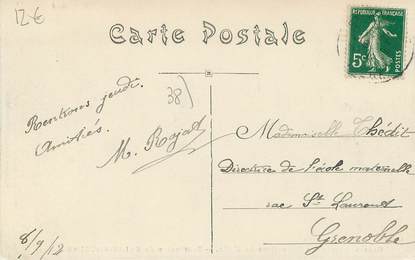 12€
Carte Postale
REPUBLIQUE FRANÇAISE
5c POSTES
38)
Rentrons jeudi.
Amitiés.
M. Rojat
Mademoiselle Thédit
Directrice de l'école maternelle
rue St Laurent
Grenoble
8/9/12